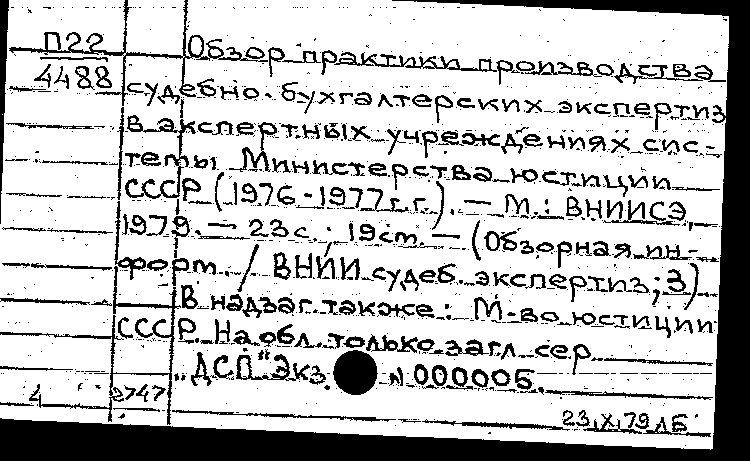 П22
4488
Обзор практики производства
судебно-бухгалтерских экспертиз
в экспертных учреждениях сис-
темы Министерства юстиции
СССР (1976-1977 г.г.). — М.: ВНИИСЭ,
1979. — 23 с.; 19 см. — (Обзорная ин-
форм. / ВНИИ судеб. экспертиз; 3)
В надзаг. также: М-во юстиции
СССР. На обл. только загл. сер.
„ДСП" Экз. № 000005.
4 2747
23.X.79 ЛБ